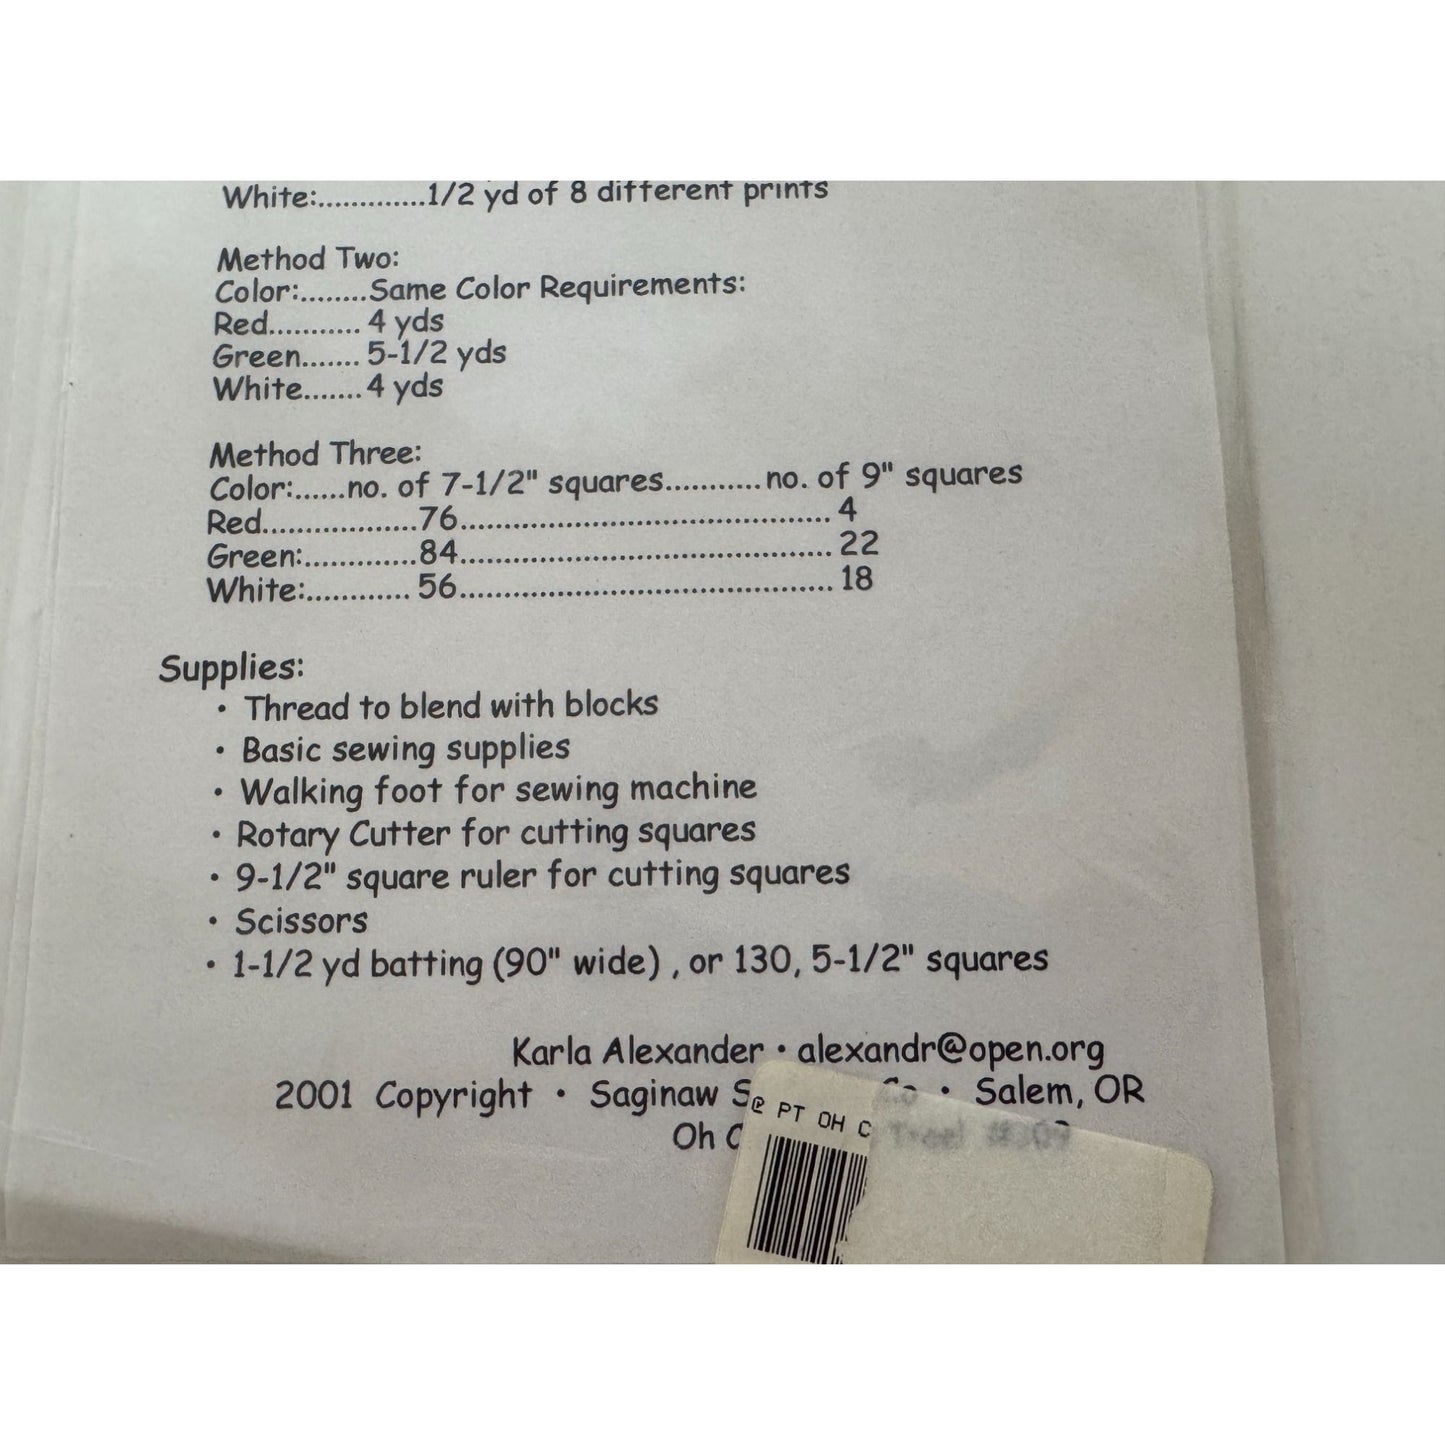 White:.............1/2 yd of 8 different prints
Method Two:
Color:........Same Color Requirements:
Red........... 4 yds
Green....... 5-1/2 yds
White....... 4 yds
Method Three:
Color:......no. of 7-1/2" squares...........no. of 9" squares
Red..................76.......................................... 4
Green:.............84.......................................... 22
White:............ 56.......................................... 18
Supplies:
• Thread to blend with blocks
• Basic sewing supplies
• Walking foot for sewing machine
• Rotary Cutter for cutting squares
• 9-1/2" square ruler for cutting squares
• Scissors
• 1-1/2 yd batting (90" wide) , or 130, 5-1/2" squares
Karla Alexander • alexandr@open.org
2001 Copyright • Saginaw Co • Salem, OR
Oh
@ PT OH C